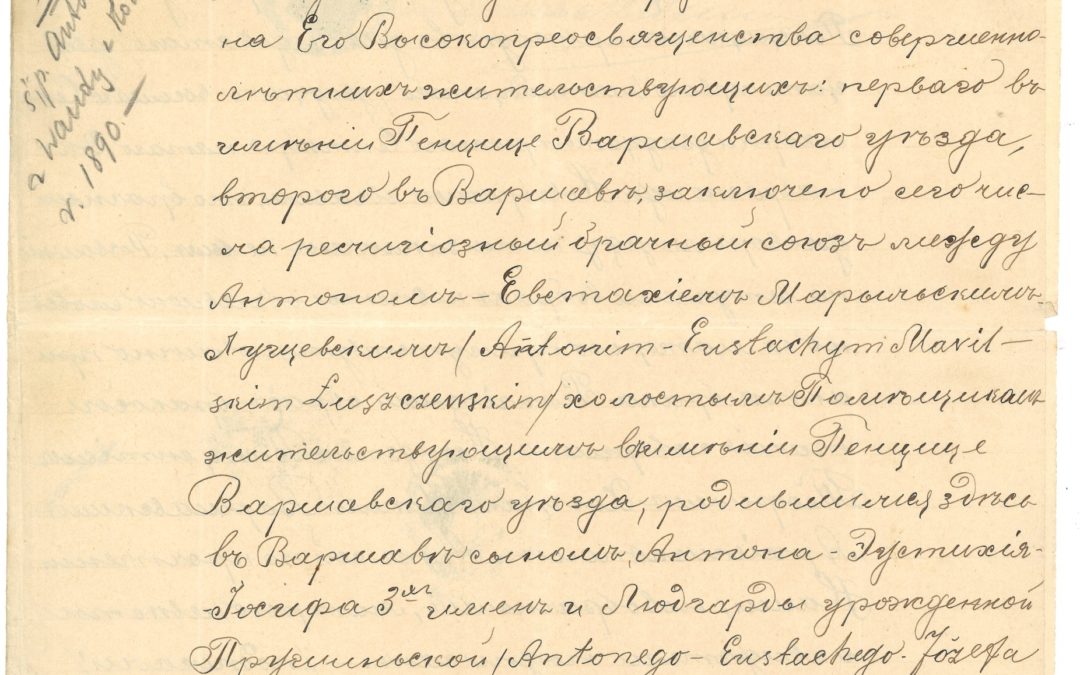 śp. Anto
z Wandy
r. 1890.
на Его Высокопреосвященства совершенно-
лѣтнихъ жительствующихъ: перваго въ
имѣніи Пенцице Варшавскаго уѣзда,
второго въ Варшавѣ, заключено сего чис-
ла религіозный брачный союзъ между
Антономъ-Евстахіемъ Марыльскимъ
Лущевскимъ /Antonim-Eustachym Maril-
skim Łuszczewskim/ холостымъ Помѣщикомъ
жительствующимъ въ имѣніи Пенцице
Варшавскаго уѣзда, родившимся здѣсь
въ Варшавѣ сыномъ, Антона-Эустихія-
Іосифа 3хъ именъ и Людгарды урожденной
/Antonego-Eustachego-Józefa